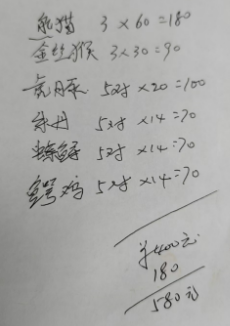 熊猫 3 × 60 = 180
金丝猴 3 × 30 = 90
虎豚 5对 × 20 = 100
朱丹 5对 × 14 = 70
5对 × 14 = 70
鸡 5对 × 14 = 70
¥400元
180
580元